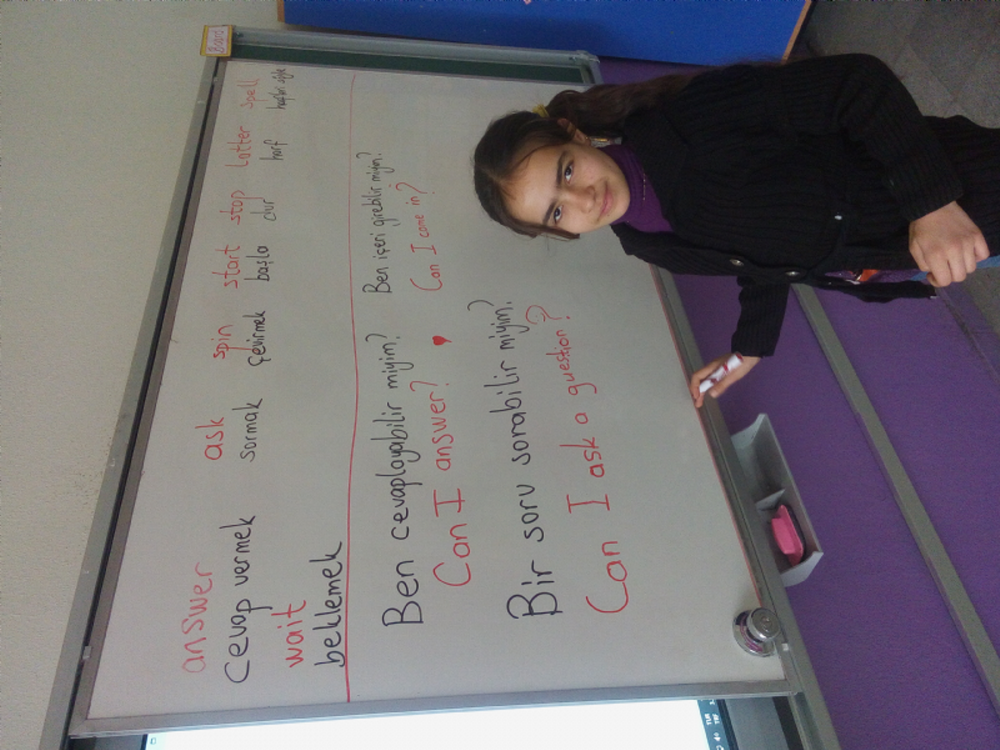 Board
answer ask spin start stop Lotter spell
cevap vermek sormak çevirmek başla dur harf
wait
beklemek
Ben cevaplayabilir miyim? Ben içeri girebilir miyim?
Can I answer? Can I come in?
Bir soru sorabilir miyim?
Can I ask a question?